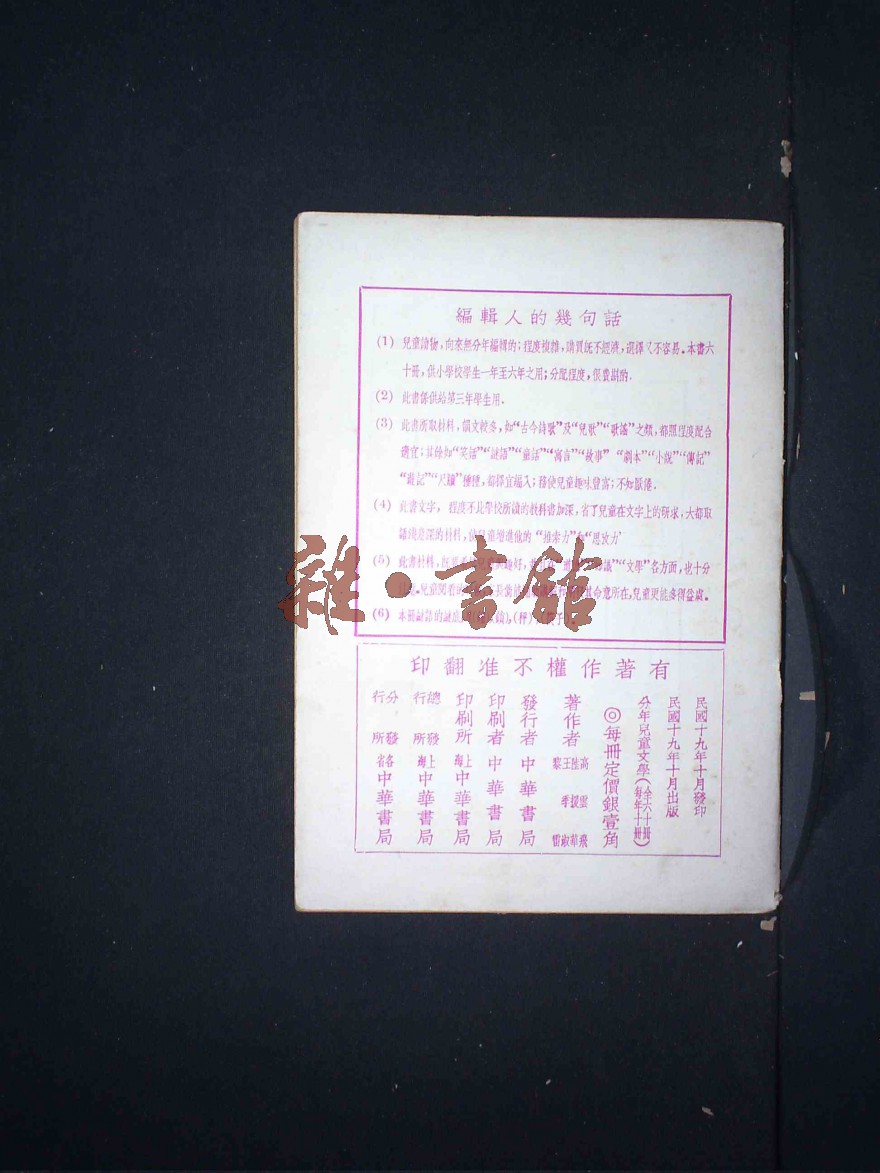 編輯人的幾句話
(1) 兒童讀物，向來無分年編輯的；程度複雜，購買既不經濟，選擇又不容易。本書六
十冊，供小學校學生一年至六年之用；分配程度，很費斟酌．
(2) 此書係供給第三年學生用．
(3) 此書所取材料，韻文較多，如“古今詩歌”及“兒歌”“歌謠”之類，都照程度配合
適宜；其餘如“笑話”“謎語”“童話”“寓言”“故事”“劇本”“小說”“傳記”
“遊記”“尺牘”種種，都擇宜編入；務使兒童趣味豐富；不知厭倦．
(4) 此書文字，程度不比學校所讀的教科書加深，省了兒童在文字上的研求，大都取
語淺意深的材料，使兒童增進他的“推索力”和“思攷力”
(5) 此書材料，
趣好，
識”“文學”各方面，也十分
兒童閱看的
長
其命意所在，兒童更能多得益處。
(6) 本冊謎語的謎底
(秤)
雜・書館
有著作權不准翻印
民國十九年十月發印
民國十九年十月出版
分年兒童文學(全六十冊 每年十冊)
◎每冊定價銀壹角
著作者 高雲飛 王淑 黎
發行者 中華書局
印刷者 中華書局
印刷所 上海中華書局
總發行所 上海中華書局
分發行所 各省中華書局